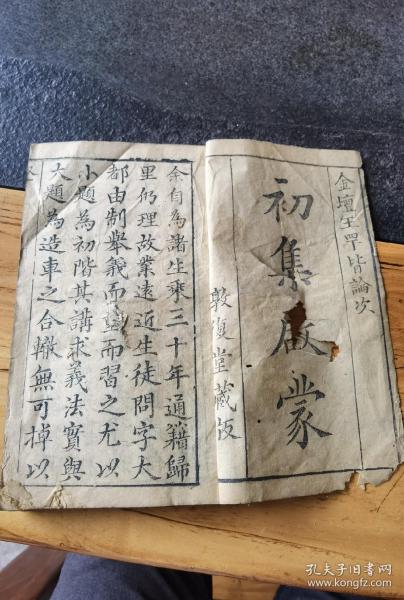 金壇王罕皆論次
初集啟蒙
敦復堂藏板
余自為諸生乘三十年通籍歸
里仍理故業遠近生徒問字大
都由制舉義而習之尤以
小題為初階其講求義法實與
大題為造車之合轍無可掉以
孔夫子旧书网
www.kongfz.com